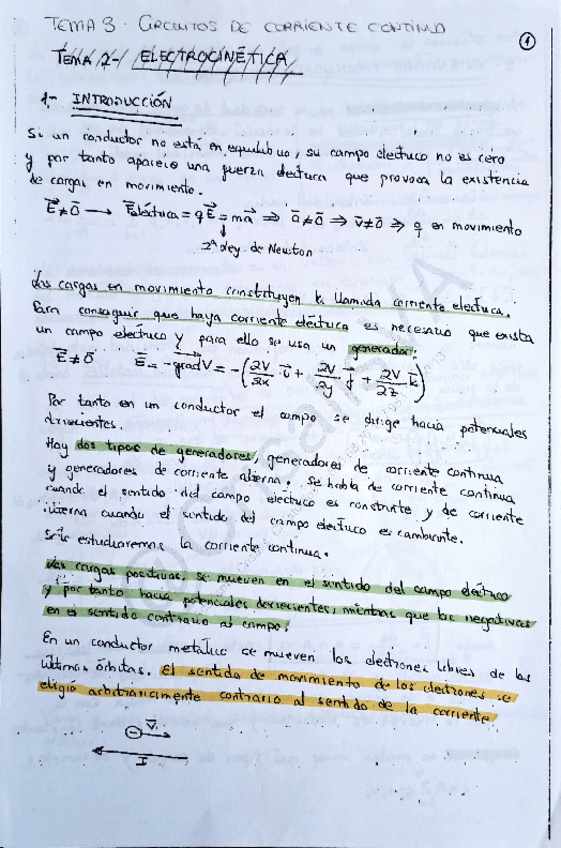 TEMA 3. CIRCUITOS DE CORRIENTE CONTINUA
1
TEMA 2-1 ELECTROCINÉTICA
1.- INTRODUCCIÓN
Si un conductor no está en equilibrio, su campo eléctrico no es cero
y por tanto aparece una fuerza eléctrica que provoca la existencia
de cargas en movimiento.
E≠0 → Feléctrica = qE = ma ⇒ a≠0 ⇒ v≠0 ⇒ q en movimiento
2ª Ley de Newton
Las cargas en movimiento constituyen la llamada corriente eléctrica.
Para conseguir que haya corriente eléctrica es necesario que exista
un campo eléctrico y para ello se usa un generador.
E≠0 E = -gradV = -(∂V/∂x i + ∂V/∂y j + ∂V/∂z k)
Por tanto en un conductor el campo se dirige hacia potenciales
decrecientes.
Hay dos tipos de generadores, generadores de corriente continua
y generadores de corriente alterna. Se habla de corriente continua
cuando el sentido del campo eléctrico es constante y de corriente
alterna cuando el sentido del campo eléctrico es cambiante.
Sólo estudiaremos la corriente continua.
Las cargas positivas, se mueven en el sentido del campo eléctrico
y por tanto hacia potenciales decrecientes, mientras que las negativas
en el sentido contrario al campo.
En un conductor metálico se mueven los electrones libres de las
últimas órbitas. El sentido de movimiento de los electrones se
eligió arbitrariamente contrario al sentido de la corriente
- v
I